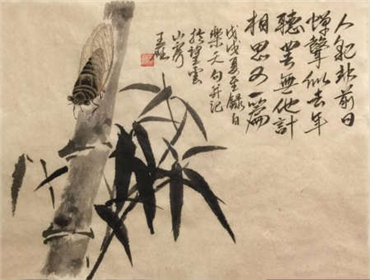 人貌非前日
蟬聲似去年
聽罷無他計
相思又一篇
戊戌夏至錄白
樂天句并記
於望雲
山房
王